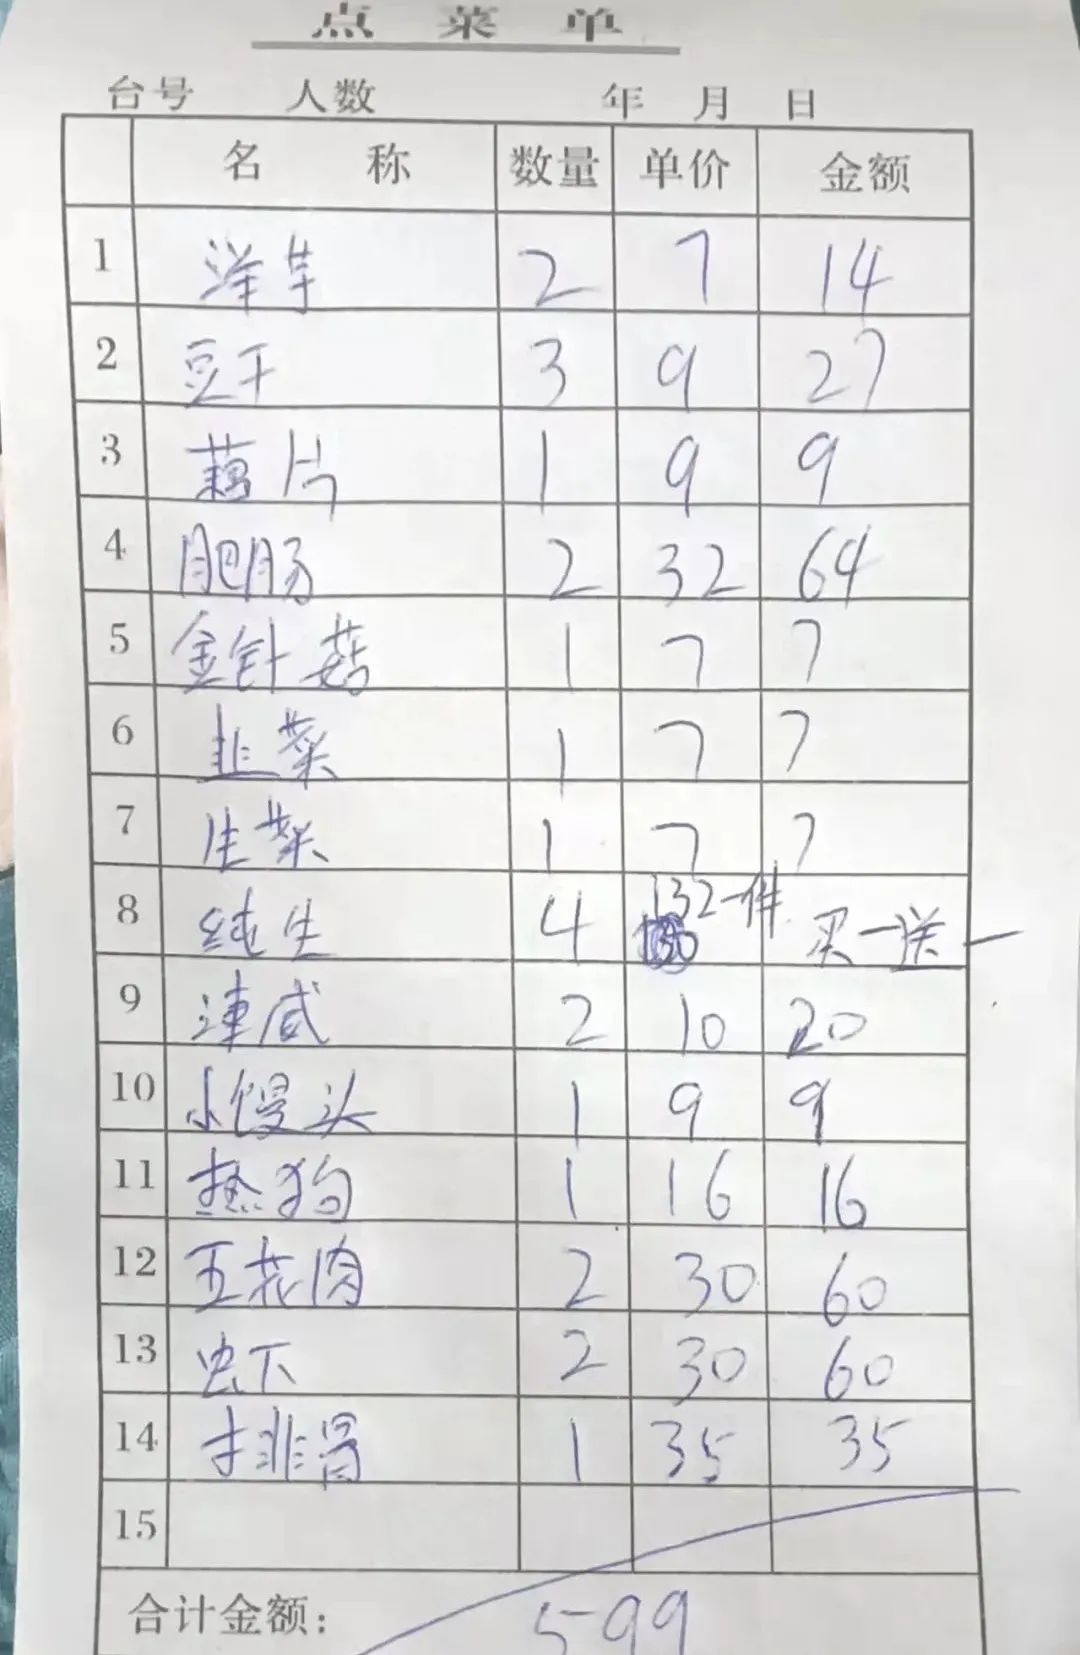 点菜单
台号 人数 年 月 日
名称 数量 单价 金额
1 洋芋 2 7 14
2 豆干 3 9 27
3 藕片 1 9 9
4 肥肠 2 32 64
5 金针菇 1 7 7
6 韭菜 1 7 7
7 生菜 1 7 7
8 纯生 4 132一件 买一送一
9 2 10 20
10 小馒头 1 9 9
11 热狗 1 16 16
12 五花肉 2 30 60
13 虾 2 30 60
14 排骨 1 35 35
15
合计金额: 599